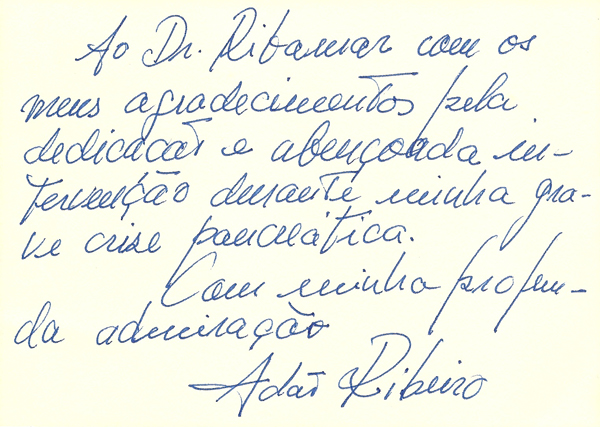 Ao Dr. Ribamar com os
meus agradecimentos pela
dedicação e abençoada in-
tervenção durante minha gra-
ve crise pancreática.
Com minha profun-
da admiração
Adão Ribeiro